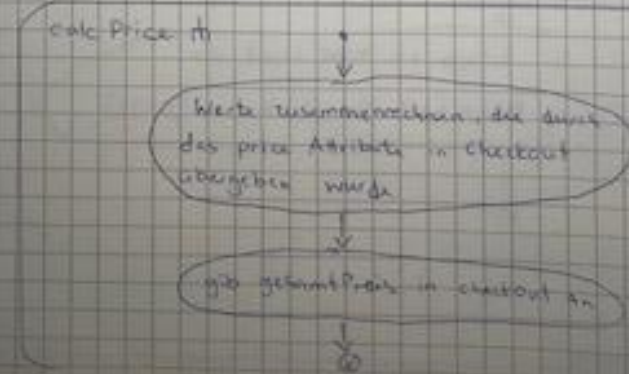 calc Price
Werte zusammenrechnen, die durch
das price Attribute in Checkout
übergeben wurde
gib gesamtPreis in checkout an